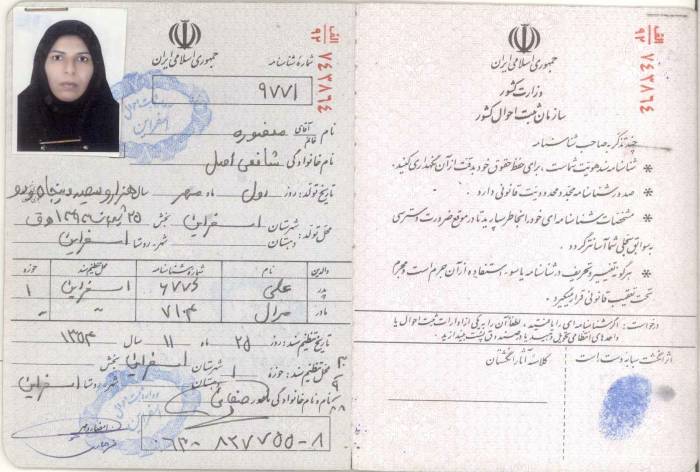 جمهوری اسلامی ایران
شماره شناسنامه
۹۷۷۱
نام آقای خانم منصوره
نام خانوادگی شافعی اصل
تاریخ تولد: روز اول ماه مهر سال هزار و سیصد و پنجاه و دو
محل تولد: شهرستان اسفراین بخش
دهستان شهر-روستا اسفراین
والدین نام شماره شناسنامه محل تنظیم سند حوزه
پدر علی ۶۷۷۶ اسفراین ۱
مادر مارال ۷۱۴ " "
تاریخ تنظیم سند: روز ۲۵ ماه ۱۱ سال ۱۳۵۴
محل تنظیم سند: حوزه ۱ شهرستان اسفراین بخش
دهستان شهر-روستا اسفراین
نام و نام خانوادگی مامور
۰۶۳۰ ۸۲۷۷۵۵-۸
الف ۹۲ ۷۴۲۸۶۴
الف ۹۲ ۷۴۲۸۶۴
جمهوری اسلامی ایران
وزارت کشور
سازمان ثبت احوال کشور
چند تذکر به صاحب شناسنامه
* شناسنامه سند هویت شماست، برای حفظ حقوق خود بدقت از آن نگهداری کنید.
* صدور شناسنامه مجدد محدودیت قانونی دارد.
* مشخصات شناسنامه ای خود را بخاطر بسپارید تا در موقع ضرورت دسترسی
بسوابق سجلی شما آسانتر گردد.
* هرگونه تغییر و تحریف در شناسنامه یا سوء استفاده از آن جرم است و مجرم
تحت تعقیب قانونی قرار میگیرد.
درخواست: اگر شناسنامه ای را یافتید، لطفا آن را به یکی از ادارات ثبت احوال یا
واحدهای انتظامی تحویل دهید یا در صندوق پست بیندازید.
اثر انگشت سبابه دست است
کلاسه آثار انگشتان